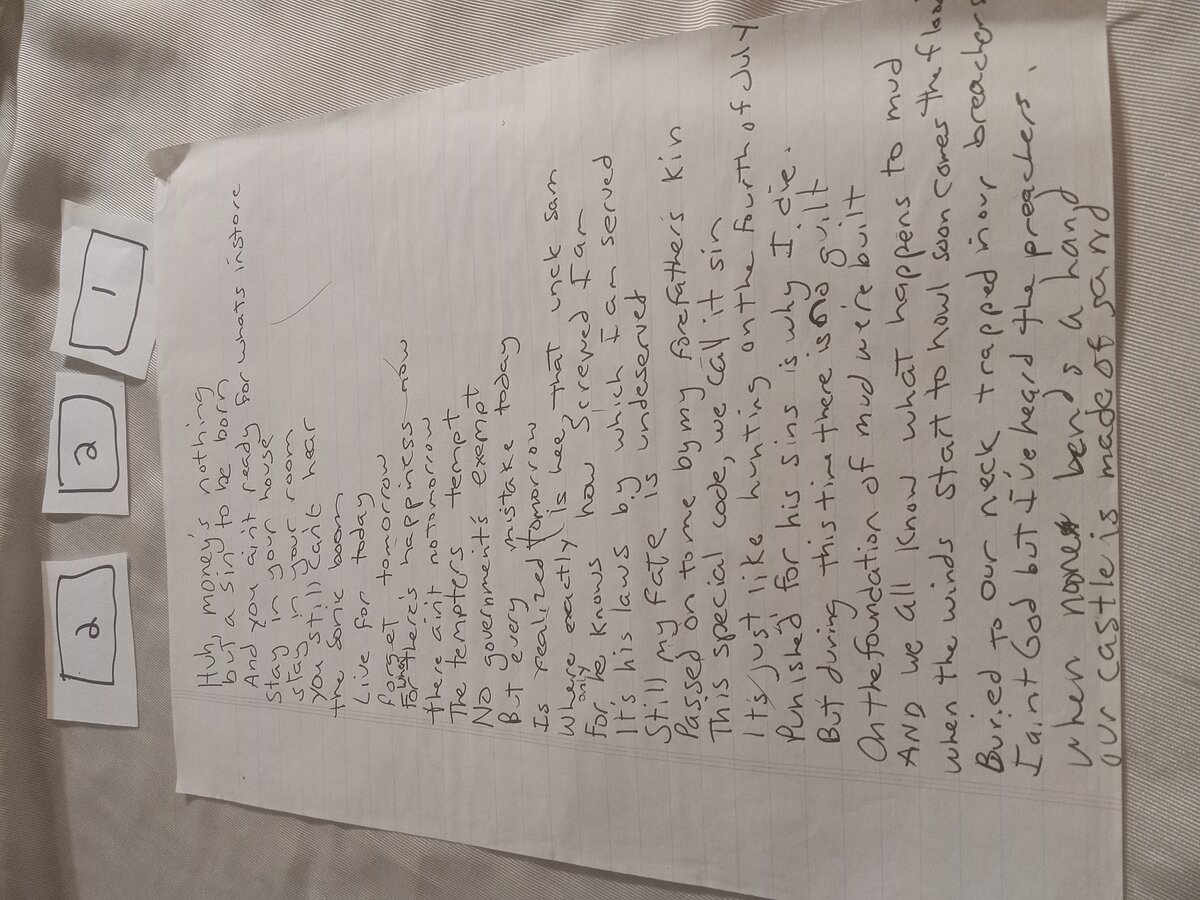 2 2 1
Huh money's nothing
but a sin to be born
And you aint ready for whats instore
Stay in your house
stay in your room
you still can't hear
the sonic boom
Live for today
forget tomorrow
For when there's happiness now
there aint notomorrow
The tempters tempt
No government's exempt
But every mistake today
Is realized tomorrow
Where exactly is he, that unck sam
For only he knows how screwed I am
It's his laws by which I am served
Still my fate is undeserved
Passed on to me by my forefather's kin
This special code, we call it sin
It's just like hunting on the fourth of July
Punished for his sins is why I die.
But during this time there is no guilt
On the foundation of mud we're built
AND we all know what happens to mud
when the winds start to howl soon comes the flood
Buried to our neck trapped in our breachers
I aint God but I've heard the preachers.
when none bends a hand
our castle is made of sand